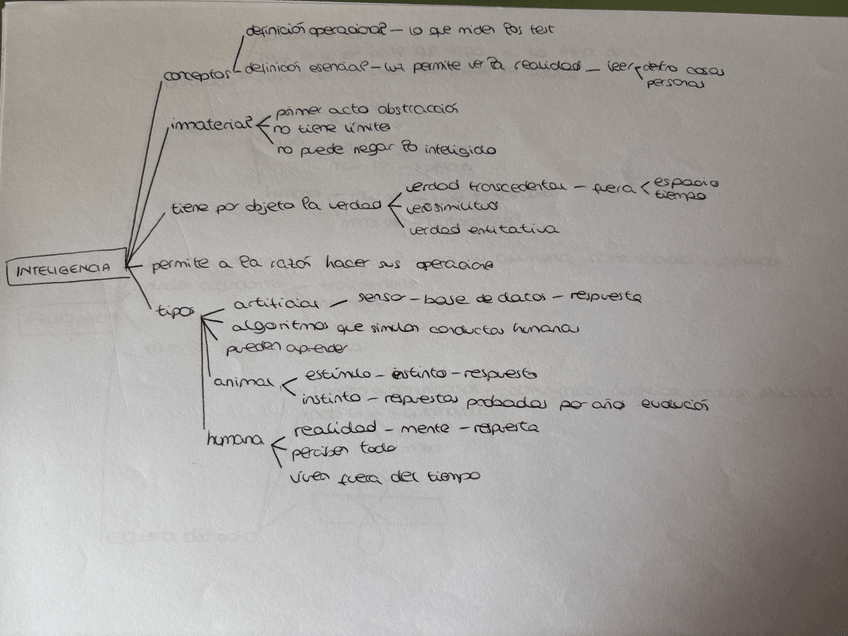 definición operacional - lo que miden los test
conceptos
definición esencial - luz permite ver la realidad - leer dentro cosas
personas
inmaterial
primer acto abstracción
no tiene límites
no puede negar lo inteligido
tiene por objeto la verdad
verdad trascedental - fuera
espacio
tiempo
verosimilitud
verdad entitativa
INTELIGENCIA
permite a la razón hacer sus operacione
tipos
artificial - sensor - base de datos - respuesta
algoritmos que simulan conductas humana
pueden aprender
animal
estímulo - instinto - respuesta
instinto - respuestas probadas por años evolución
humana
realidad - mente - respuesta
perciben todo
viven fuera del tiempo